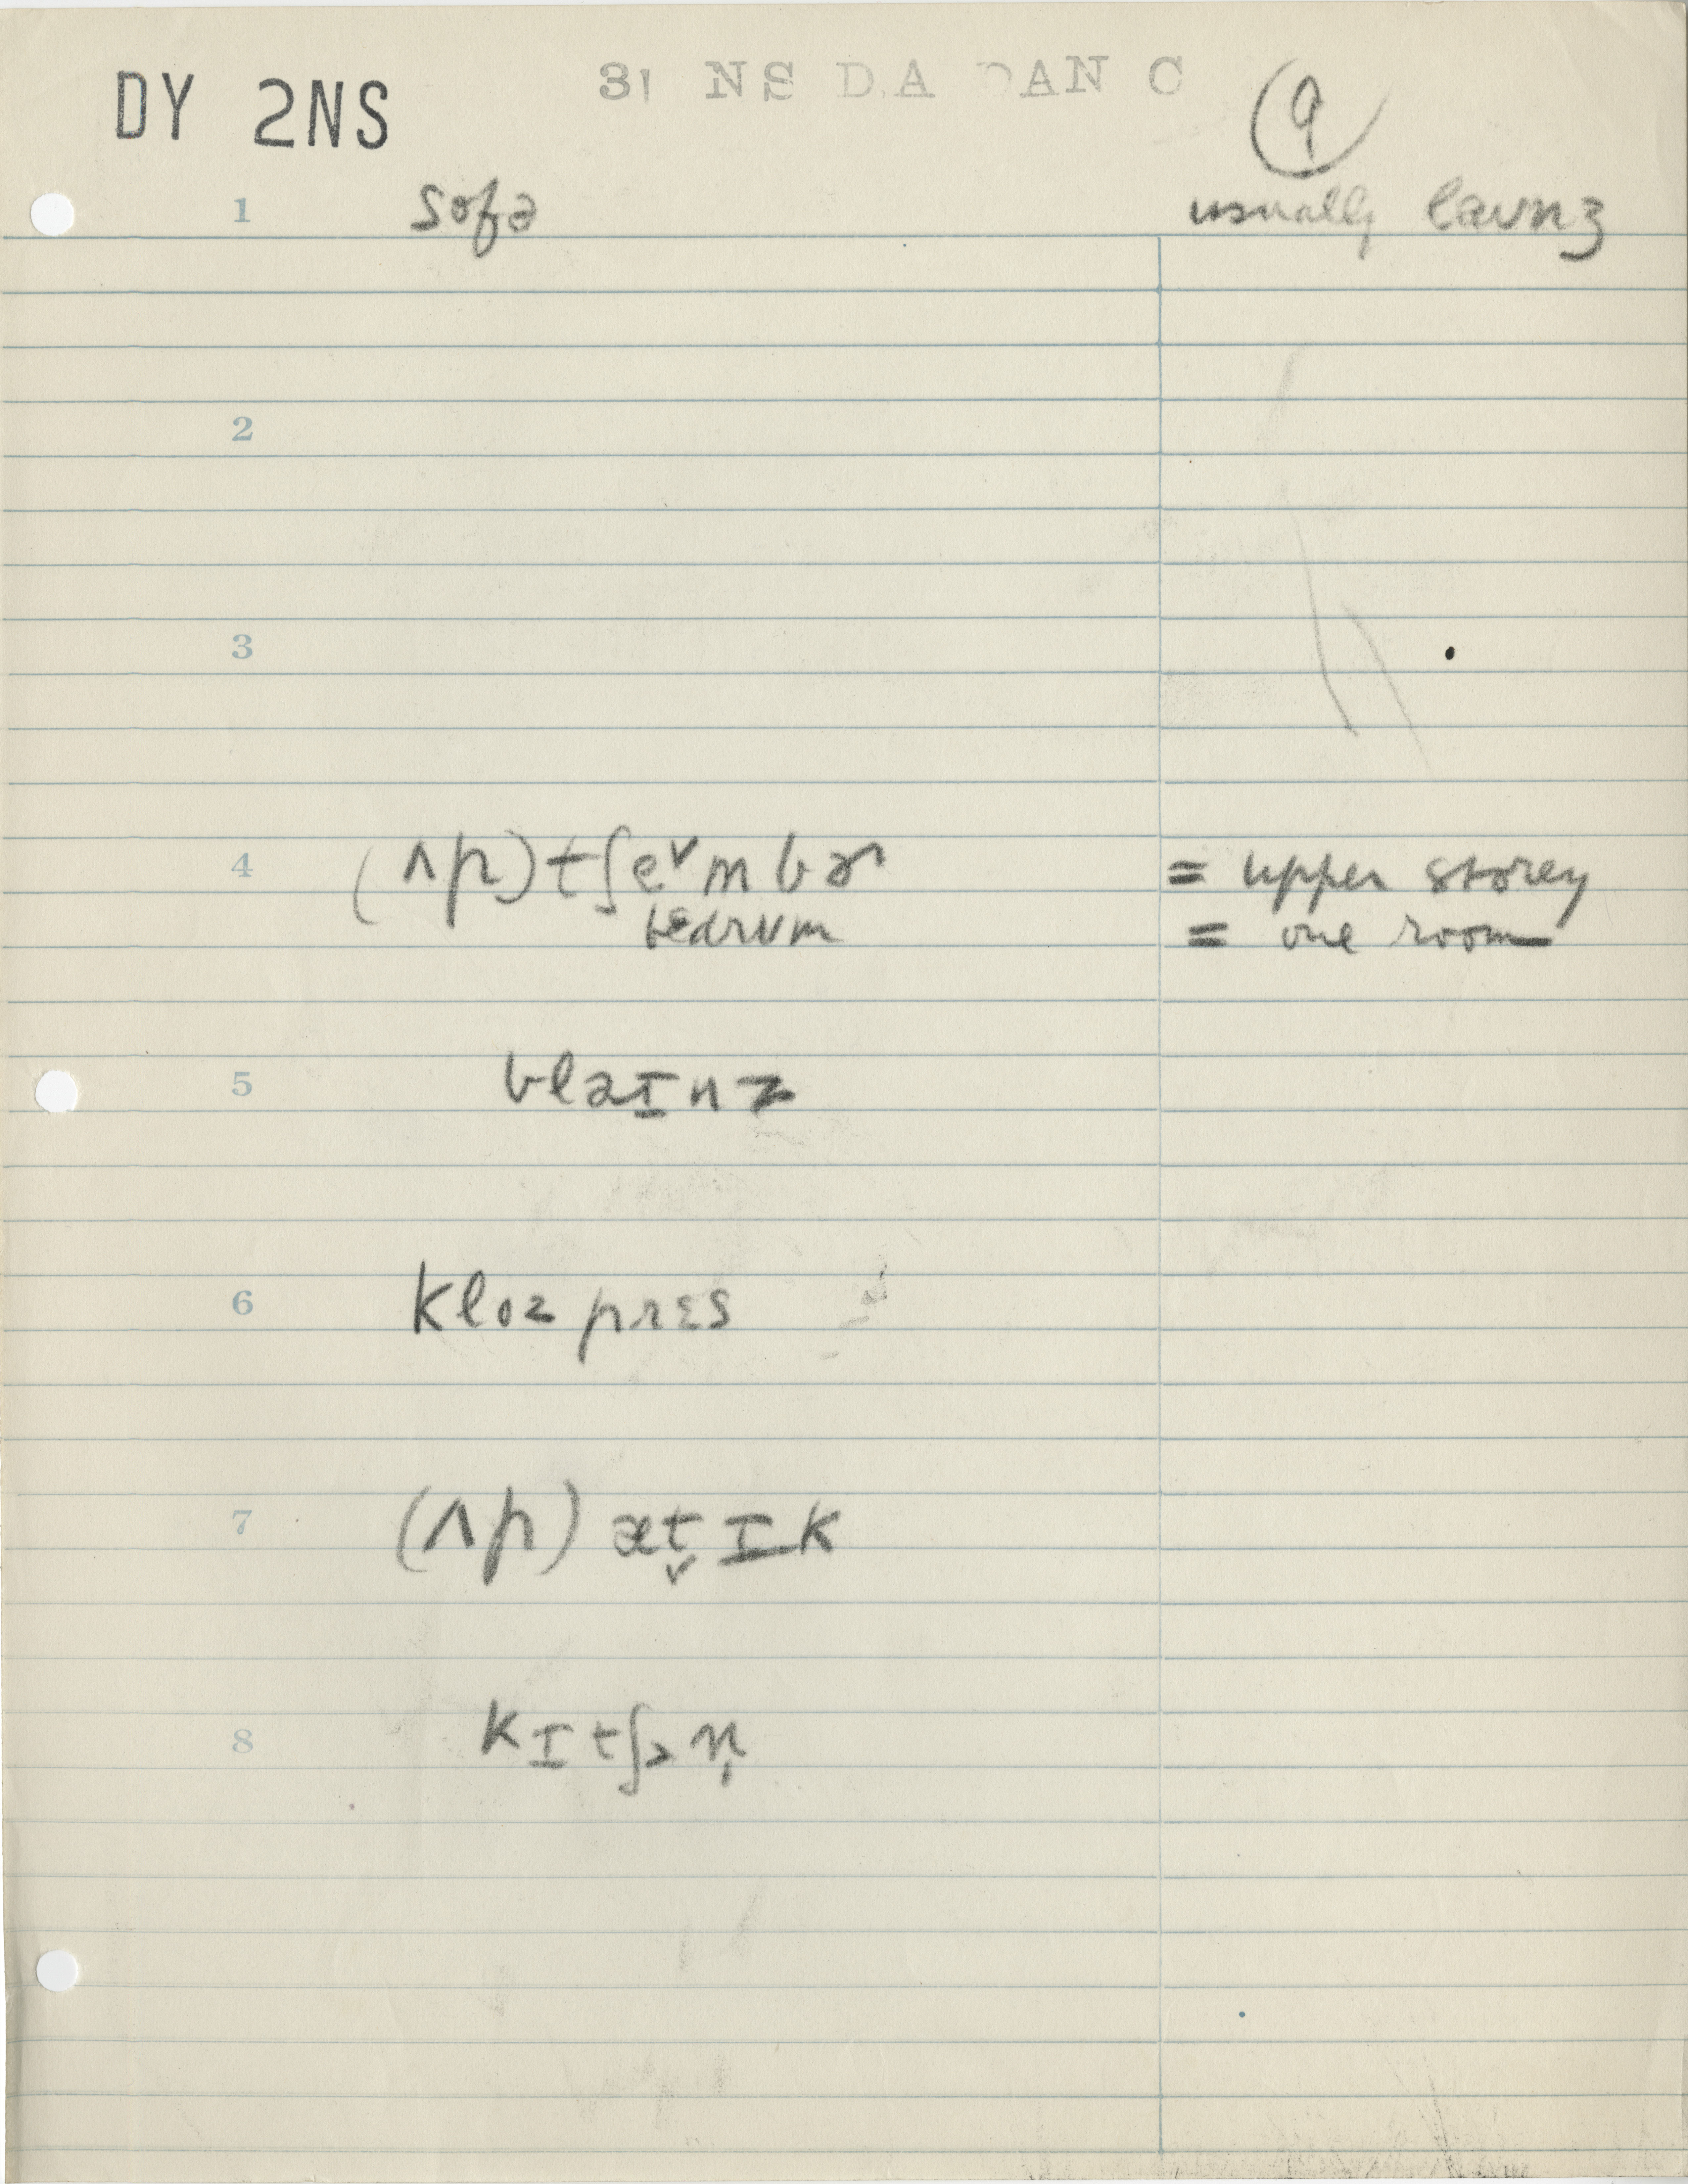 DY 2NS
9
1 sofə usually laʊnʒ
2
3
4 (ʌp) tʃe˅mbɚ = upper storey
bɛdrʊm = one room
5 blaɪnz
6 kloz prɛs
7 (ʌp) æt̬ɪk
8 kɪtʃən̩